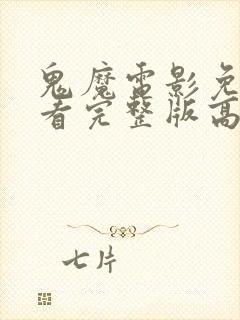 鬼魔雷影免
看完整版高
七片